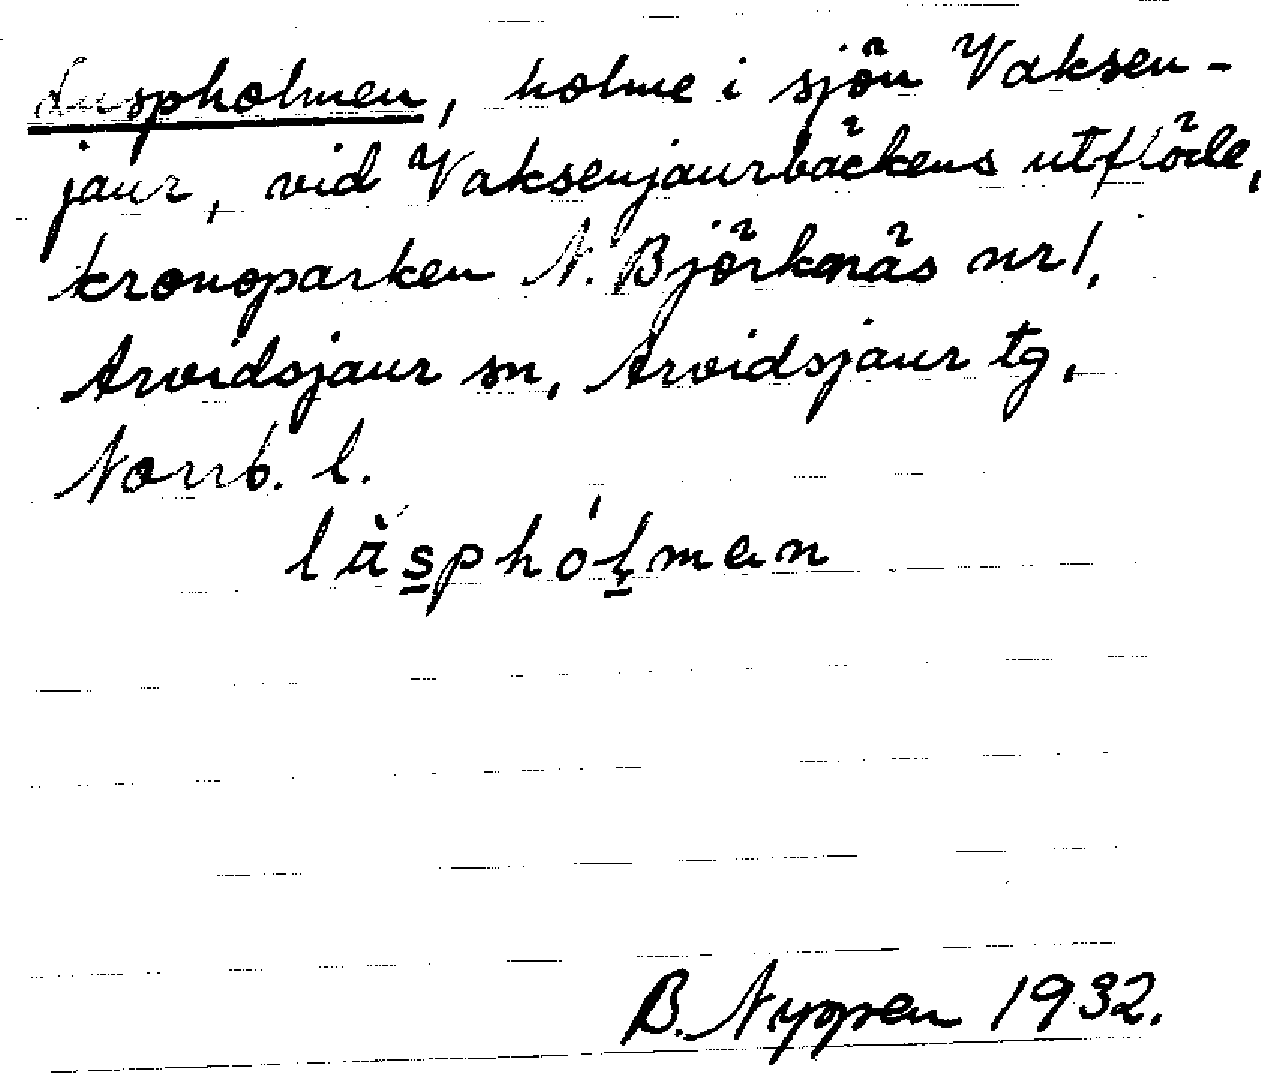 Luspholmen, holme i sjön Vaksen-
jaur, vid Vaksenjaurbäckens utflöde,
kronoparken N. Björknäs nr 1,
Arvidsjaur sn, Arvidsjaur tg,
Norrb. l.
lùsphól̥man
B. Nygren 1932.